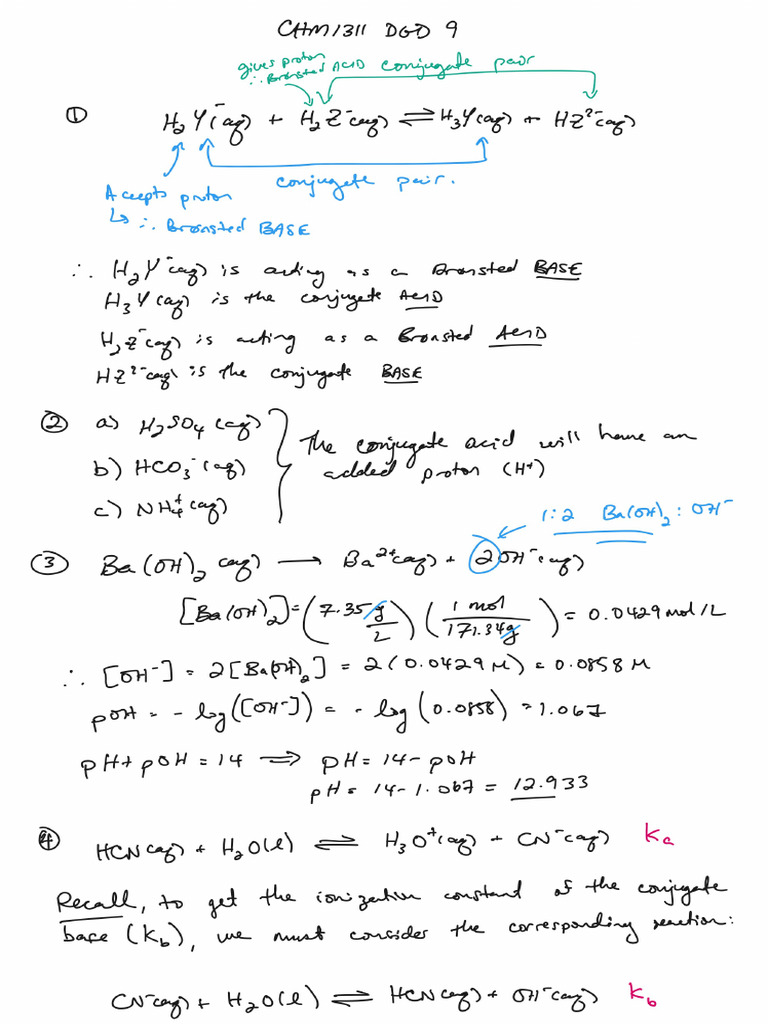 CHM1311 DGD 9
gives proton
∴ Bronsted ACID conjugate pair
① H₂Y⁻(aq) + H₂Z⁻(aq) ⇌ H₃Y(aq) + HZ²⁻(aq)
Accepts proton conjugate pair.
↳ ∴ Bronsted BASE
∴ H₂Y⁻(aq) is acting as a Bronsted BASE
H₃Y(aq) is the conjugate ACID
H₂Z⁻(aq) is acting as a Bronsted ACID
HZ²⁻(aq) is the conjugate BASE
② a) H₂SO₄(aq)
b) HCO₃⁻(aq)
c) NH₄⁺(aq)
The conjugate acid will have an
added proton (H⁺)
1:2 Ba(OH)₂ : OH⁻
③ Ba(OH)₂(aq) → Ba²⁺(aq) + 2OH⁻(aq)
[Ba(OH)₂] = (7.35 g/L)(1 mol/171.34g) = 0.0429 mol/L
∴ [OH⁻] = 2[Ba(OH)₂] = 2(0.0429 M) = 0.0858 M
pOH = -log([OH⁻]) = -log(0.0858) = 1.067
pH + pOH = 14 ⟹ pH = 14 - pOH
pH = 14 - 1.067 = 12.933
④ HCN(aq) + H₂O(l) ⇌ H₃O⁺(aq) + CN⁻(aq) Ka
Recall, to get the ionization constant of the conjugate
base (Kb), we must consider the corresponding reaction:
CN⁻(aq) + H₂O(l) ⇌ HCN(aq) + OH⁻(aq) Kb